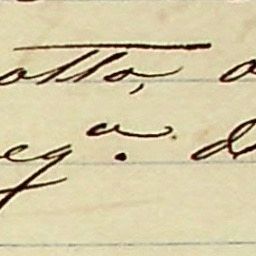 otto, a
eg.ª d